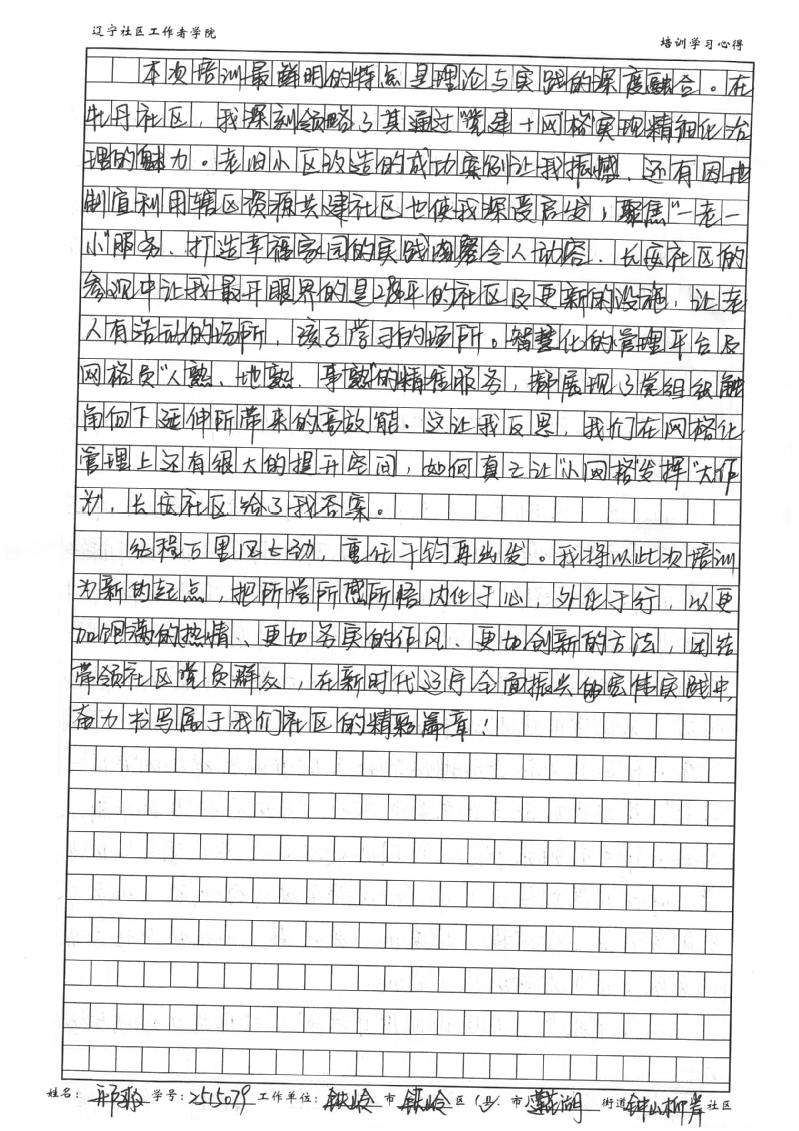 辽宁社区工作者学院
培训学习心得
本次培训最鲜明的特点是理论与实践的深度融合。在
牡丹社区，我深刻领略了其通过“党建+网格”实现精细化治
理的魅力。老旧小区改造的成功案例让我振憾，还有因地
制宜利用辖区资源共建社区也使我深受启发，聚焦“一老一
小”服务、打造幸福家园的实践令人动容．长安社区的
参观中让我最开眼界的是2.8平的社区及更新的设施，让老
人有活动的场所，孩子学习的场所。智慧化的管理平台及
网格员“人熟、地熟、事熟”的精准服务，都展现了党组织触
角向下延伸所带来的高效能．这让我反思，我们在网格化
管理上还有很大的提升空间，如何真正让“小网格”发挥“大作
为”，长安社区给了我答案。
征程万里风正劲，重任千钧再出发。我将以此次培训
为新的起点，把所学所感所悟内化于心，外化于行，以更
加饱满的热情、更加务实的作风、更加创新的方法，团结
带领社区党员群众，在新时代辽宁全面振兴的宏伟实践中
奋力书写属于我们社区的精彩篇章！
姓名： 学号：2515079 工作单位：铁岭 市 铁岭 区（县、市 莲花湖 街道 钟山柳岸 社区